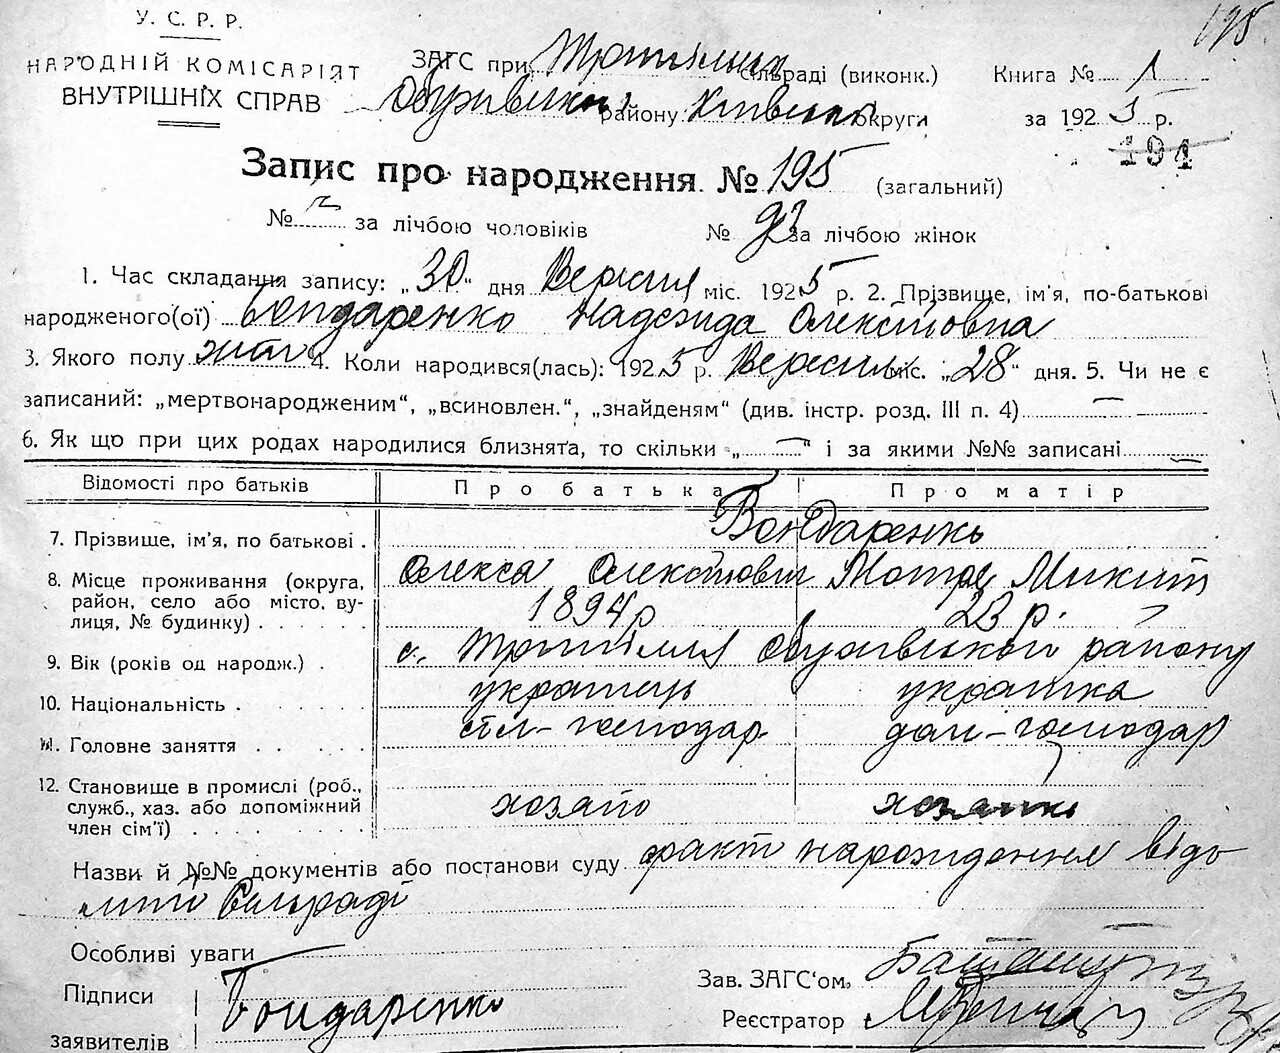 195.
У. С. Р. Р.
НАРОДНІЙ КОМІСАРІЯТ
ВНУТРІШНІХ СПРАВ
ЗАГС при Трипільській сільраді (виконк.)
Обухівськ. району Київськ. округи
Книга № 1
за 1925 р.
194
Запис про народження № 195 (загальний)
№ — за лічбою чоловіків № 92 за лічбою жінок
1. Час складання запису: „30“ дня Вересня міс. 1925 р. 2. Прізвище, ім'я, по-батькові
народженого(ої) Бондаренко Надежда Олексіїовна
3. Якого полу жін 4. Коли народився(лась): 1925 р. Вересня міс. „28“ дня. 5. Чи не є
записаний: „мертвонародженим“, „всиновлен.“, „знайденям“ (див. інстр. розд. III п. 4) —
6. Як що при цих родах народилися близнята, то скільки „—“ і за якими №№ записані —
Відомості про батьків Про батька Про матір
7. Прізвище, ім'я, по батькові . Бондаренкь
Олекса Олексійович Мотря Микит
8. Місце проживання (округа,
район, село або місто, ву-
лиця, № будинку)
1894 р 23 р.
9. Вік (років од народж.) . с. Трипілля Обухівської району
10. Національність . українець українка
11. Головне заняття . . . сіл-господар дом-господар
12. Становище в промислі (роб.,
служб., хаз. або допоміжний
член сім'ї) . . . . хозяїн хозяйка
Назви й №№ документів або постанови суду факт нарождення відо
мий Сільраді
Особливі уваги
Підписи
заявителів
Бондаренко
Зав. ЗАГС'ом,
Реєстратор